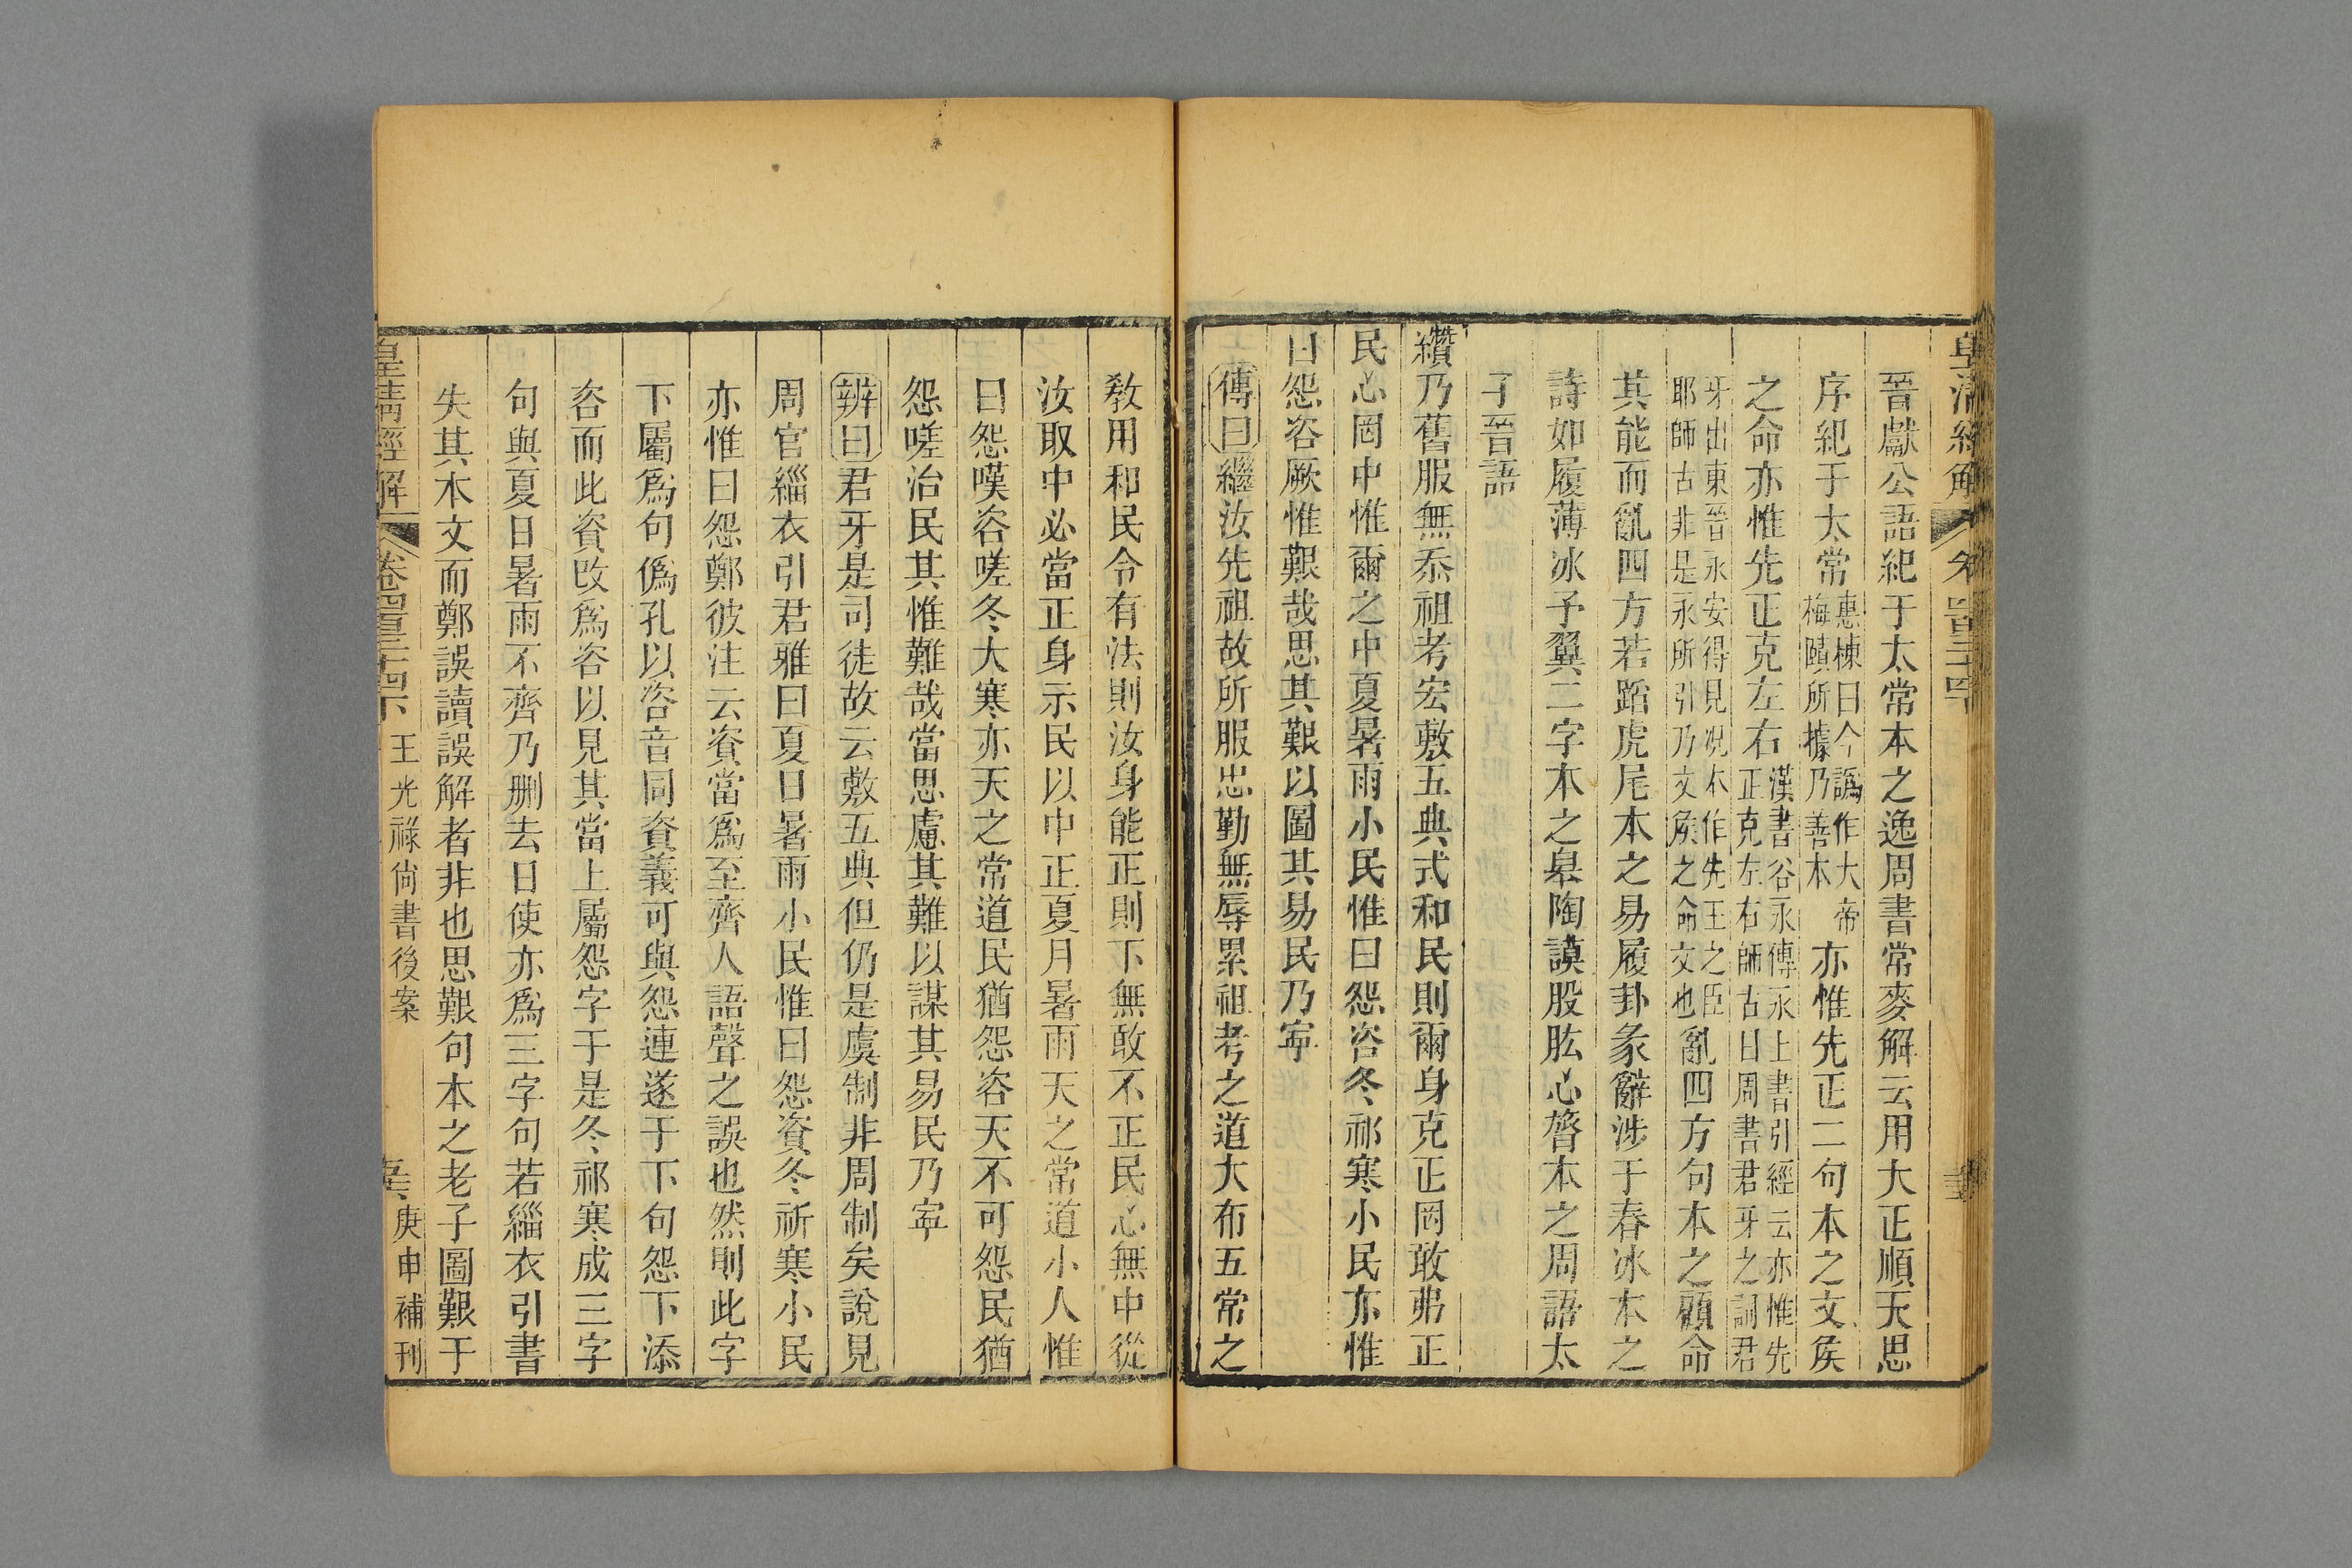 皇清經解
晉獻公語紀于太常本之逸周書常麥解云用大正順天思
序紀于太常惠棟曰今譌作大帝梅賾所據乃善本亦惟先正二句本之文侯
之命亦惟先正克左右漢書谷永傳永上書引經云亦惟先正克左右師古曰周書君牙之詞君
牙出東晉永安得見況本作先王之臣耶師古非是永所引乃文侯之命文也亂四方句本之顧命
其能而亂四方若蹈虎尾本之易履卦彖辭涉于春冰本之
詩如履薄冰予翼二字本之皋陶謨股肱心膂本之周語太
子晉語
纘乃舊服無忝祖考宏敷五典式和民則爾身克正罔敢弗正
民心罔中惟爾之中夏暑雨小民惟曰怨咨冬祁寒小民亦惟
曰怨咨厥惟艱哉思其艱以圖其易民乃寜
傳曰繼汝先祖故所服忠勤無辱累祖考之道大布五常之
敎用和民令有法則汝身能正則下無敢不正民心無中從
汝取中必當正身示民以中正夏月暑雨天之常道小人惟
曰怨嘆咨嗟冬大寒亦天之常道民猶怨咨天不可怨民猶
怨嗟治民其惟難哉當思慮其難以謀其易民乃寜
辨曰君牙是司徒故云敷五典但仍是虞制非周制矣說見
周官緇衣引君雅曰夏日暑雨小民惟曰怨資冬祈寒小民
亦惟曰怨鄭彼注云資當爲至齊人語聲之誤也然則此字
下屬爲句僞孔以咨音同資義可與怨連遂于下句怨下添
咨而此資改爲咨以見其當上屬怨字于是冬祁寒成三字
句與夏日暑雨不齊乃删去日使亦爲三字句若緇衣引書
失其本文而鄭誤讀誤解者非也思艱句本之老子圖艱于
皇清經解 卷四百三十四下 王光祿尙書後案 庚申補刊